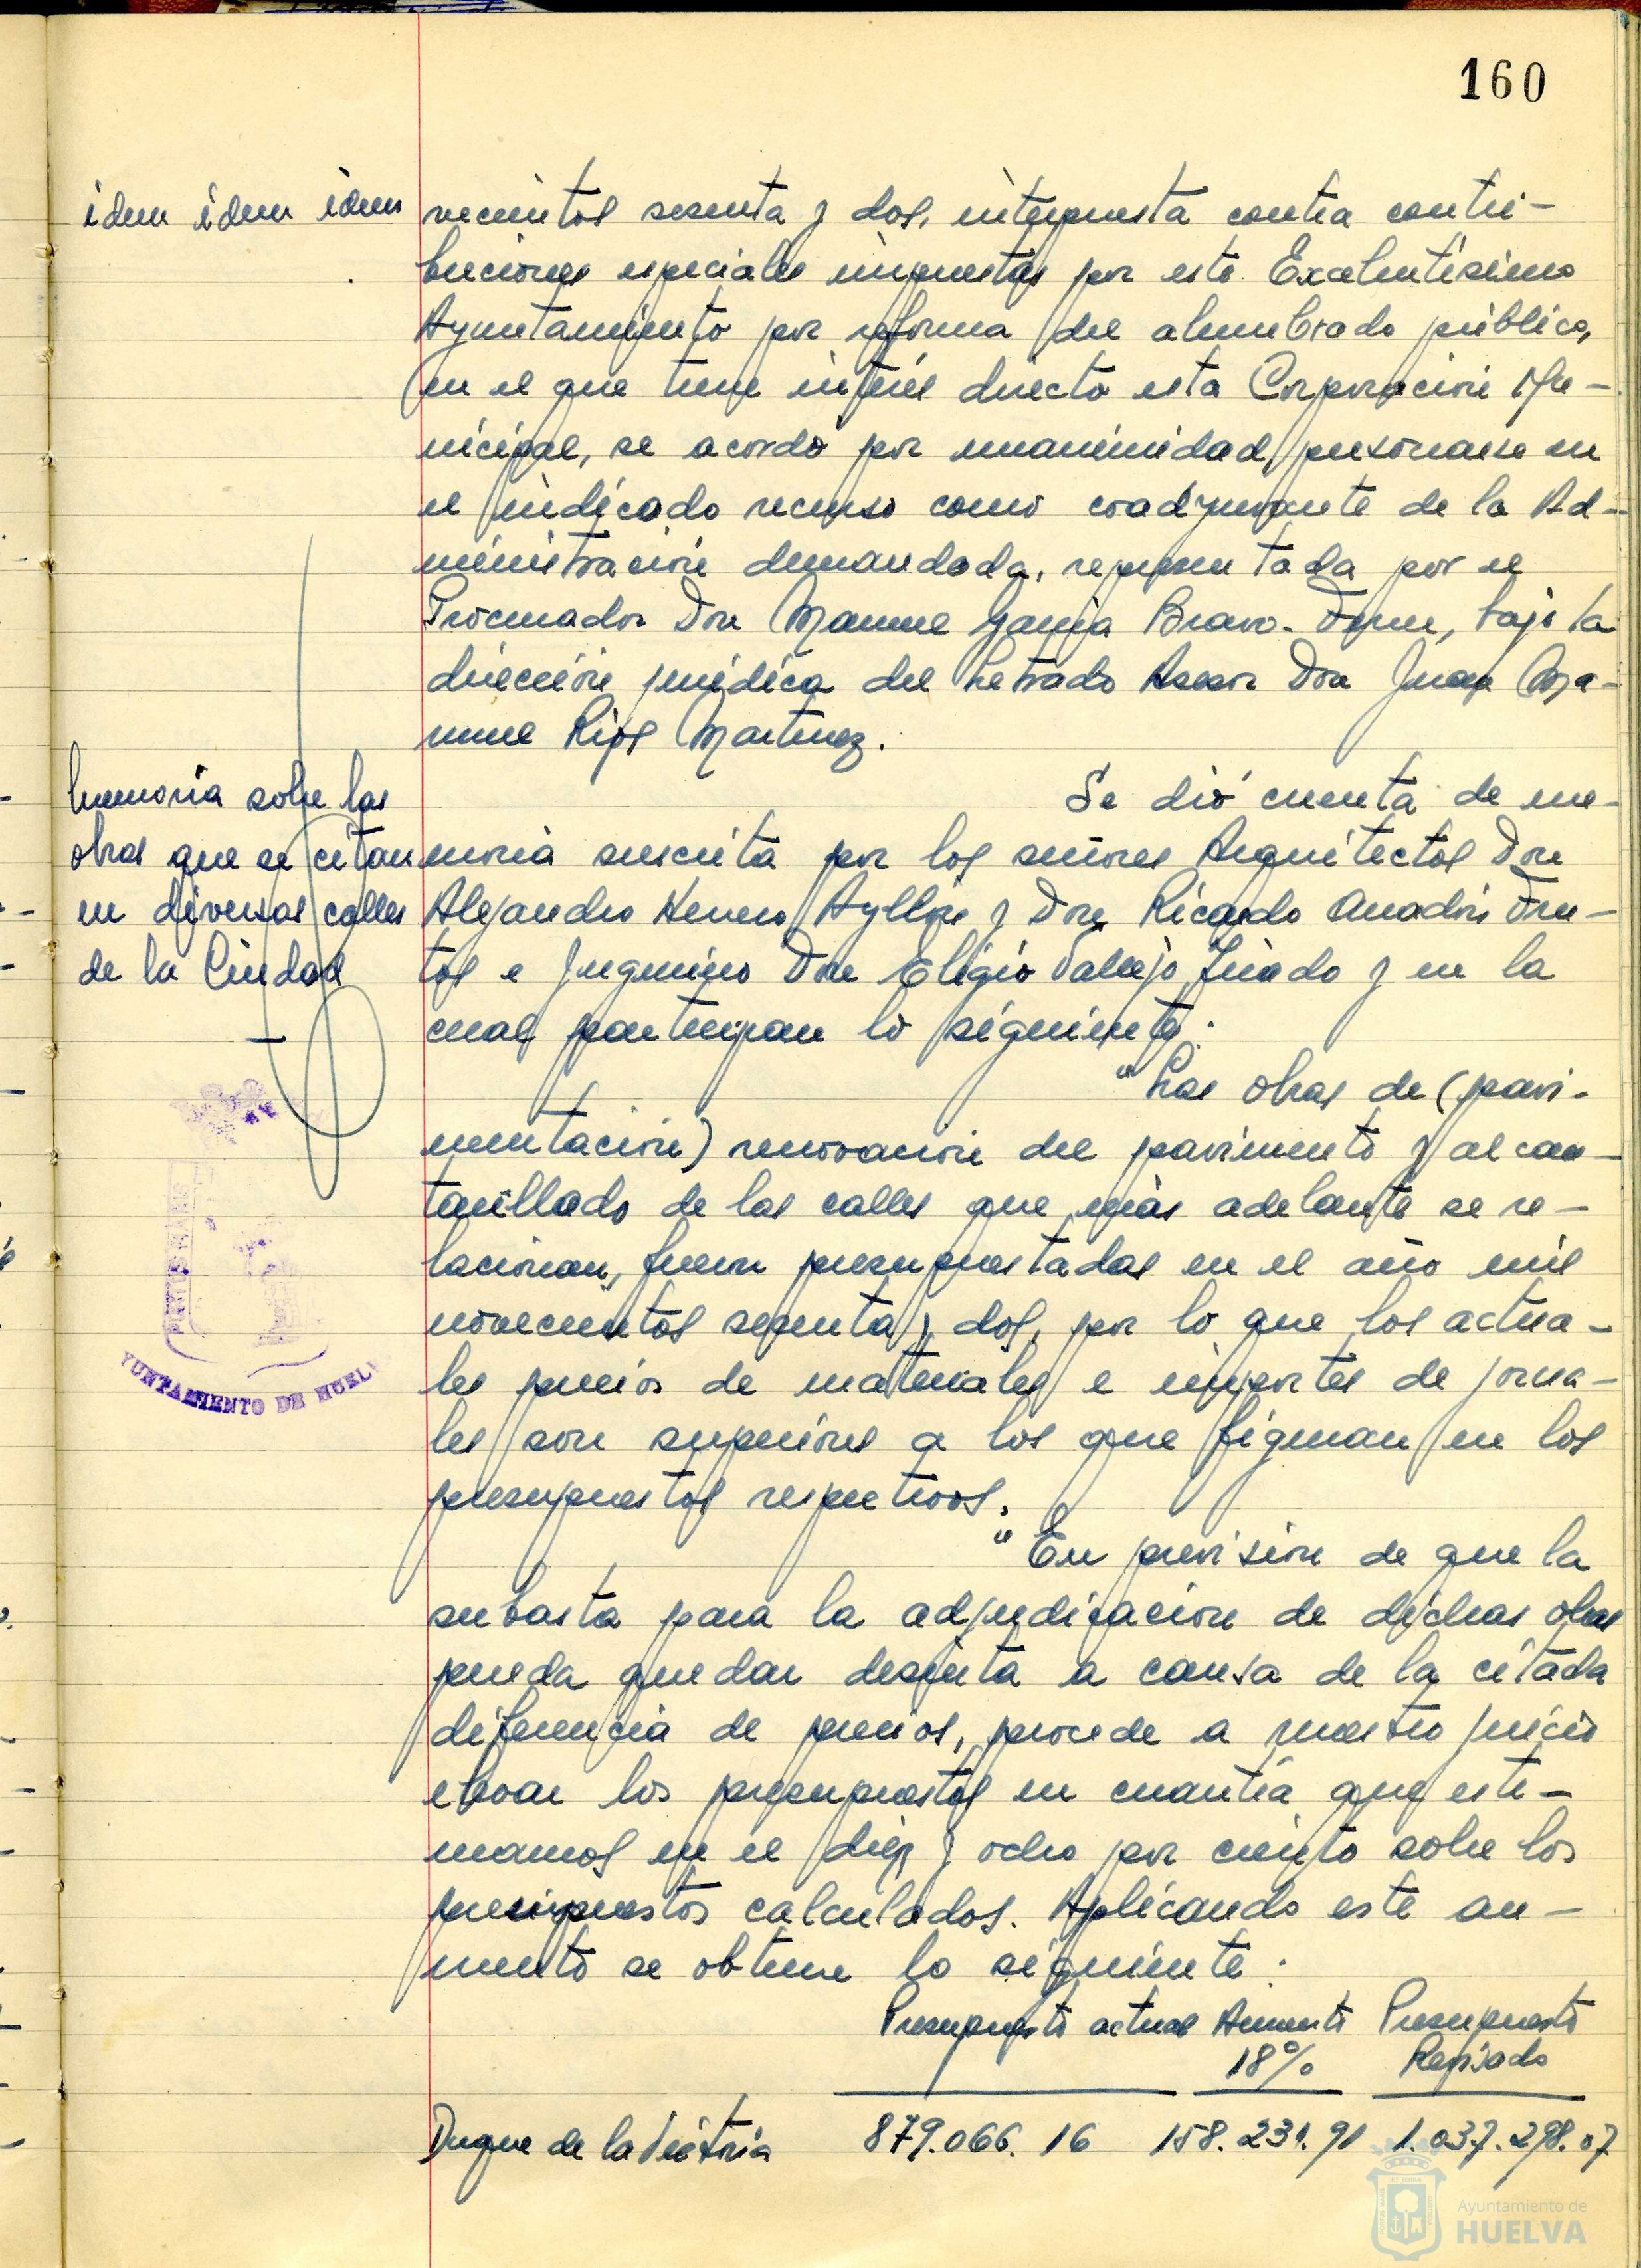 160
idem idem idem
vecientos sesenta y dos, interpuesta contra contri-
buciones especiales impuestas por este Excelentísimo
Ayuntamiento por reforma del alumbrado público,
en el que tiene interés directo esta Corporación Mu-
nicipal, se acordó por unanimidad, personarse en
el indicado recurso como coadyuvante de la Ad-
ministración demandada, representada por el
Procurador Don Manuel García Bravo-Ferrer, bajo la
dirección jurídica del Letrado Asesor Don Juan Ma-
nuel Ríos Martinez.
Memoria sobre las
obras que se citan
en diversas calles
de la Ciudad
Se dió cuenta de me-
moria suscrita por los señores Arquitectos Don
Alejandro Herrero Ayllón y Don Ricardo Anadón Fru-
tos e Ingeniero Don Eligio Vallejo Jurado y en la
cual participan lo siguiente:
"Las obras de (pavi-
mentación) renovación del pavimento y alcan-
tarillado de las calles que más adelante se re-
lacionan, fueron presupuestadas en el año mil
novecientos sesenta y dos, por lo que los actua-
les precios de materiales e importes de jorna-
les son superiores a los que figuran en los
presupuestos respectivos.
"En previsión de que la
subasta para la adjudicación de dichas obras
pueda quedar desierta a causa de la citada
diferencia de precios, procede a nuestro juicio
elevar los presupuestos en cuantía que esti-
mamos en el diez y ocho por ciento sobre los
presupuestos calculados. Aplicando este au-
mento se obtiene lo siguiente:
Presupuesto actual Aumento Presupuesto
18% Revisado
Duque de la Victoria 879.066.16 158.231.91 1.037.298.07
AYUNTAMIENTO DE HUELVA
Ayuntamiento de
HUELVA